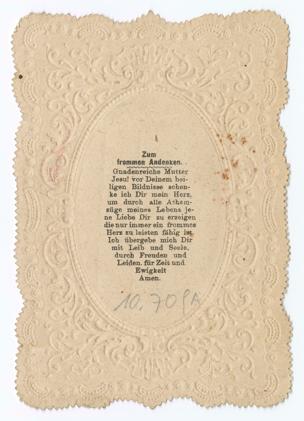 Zum
frommen Andenken.
Gnadenreiche Mutter
Jesu! vor Deinem hei-
ligen Bildnisse schen-
ke ich Dir mein Herz,
um durch alle Athem-
züge meines Lebens je-
ne Liebe Dir zu erzeigen
die nur immer ein frommes
Herz zu leisten fähig ist.
Ich übergebe mich Dir
mit Leib und Seele,
durch Freuden und
Leiden, für Zeit und
Ewigkeit
Amen.
10.709A